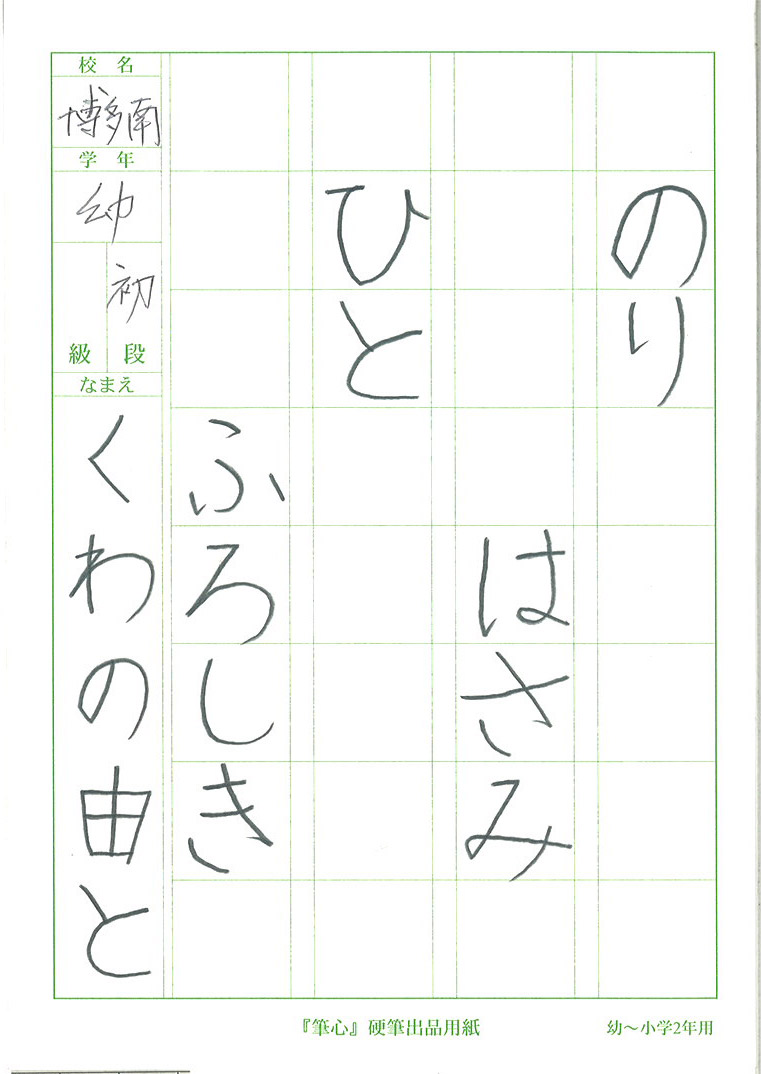 のり
はさみ
ひと
ふろしき
校名
博多南
学年
幼
級
初段
なまえ
くわの由と
『筆心』硬筆出品用紙
幼〜小学2年用